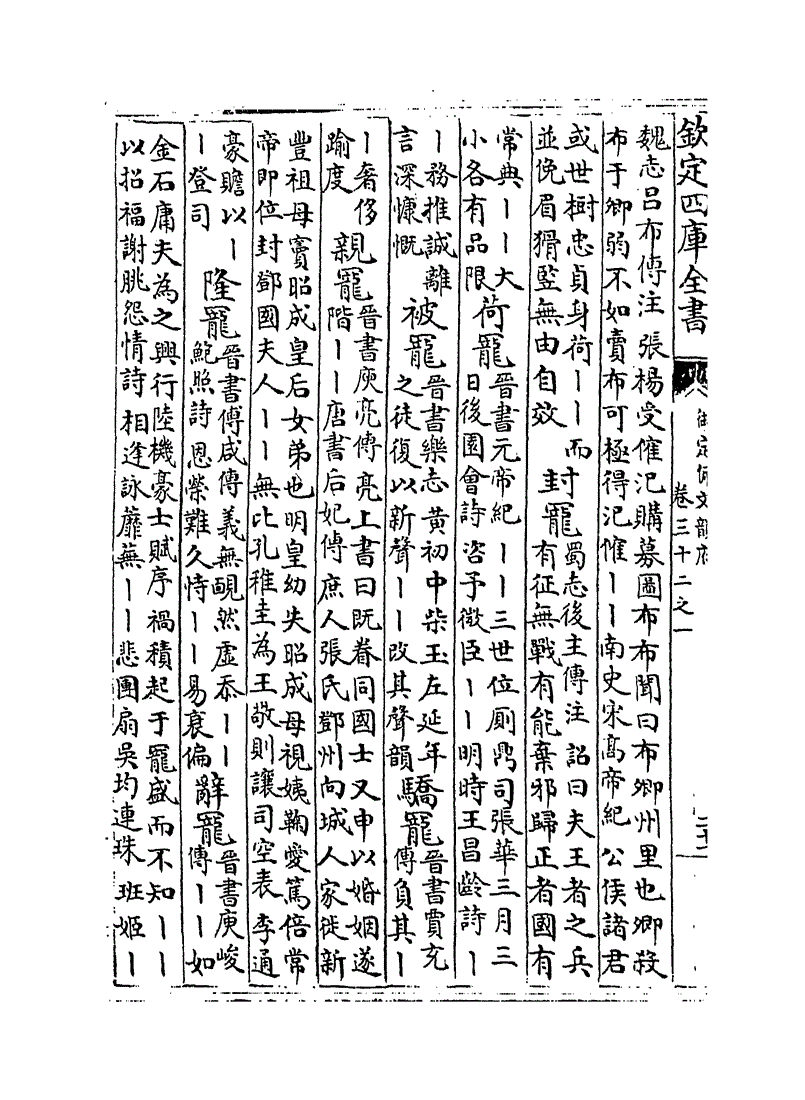 欽定四庫全書
御定佩文韻府
卷三十二之一
魏志呂布傳注 張楊受傕汜購募圖布布聞曰布卿州里也卿殺
布于卿弱不如賣布可極得汜傕丨丨南史宋高帝紀 公侯諸君
或世樹忠貞身荷丨丨而
並俛眉猾豎無由自效
封寵
蜀志後主傳注 詔曰夫王者之兵
有征無戰有能棄邪歸正者國有
常典丨丨大
小各有品限
荷寵
晉書元帝紀 丨丨三世位厠鼎司張華三月三
日後園會詩 咨予微臣丨丨明時王昌齡詩丨
丨務推誠離
言深慷慨
被寵
晉書樂志黄初中柴玉左延年
之徒復以新聲丨丨改其聲韻
驕寵
晉書賈充
傳負其丨
丨奢侈
踰度
親寵
晉書庾亮傳 亮上書曰既眷同國士又申以婚姻遂
階丨丨唐書后妃傳庶人張氏鄧州向城人家徙新
豐祖母竇昭成皇后女弟也明皇幼失昭成母視姨鞠愛篤倍常
帝即位封鄧國夫人丨丨無比孔稚圭為王敬則讓司空表 李通
豪贍以丨
丨登司
隆寵
晉書傅咸傳 義無靦然虛忝丨丨
鮑照詩 恩榮難久恃丨丨易衰偏
辭寵
晉書庾峻
傳丨丨如
金石庸夫為之興行陸機豪士賦序 禍積起于寵盛而不知丨丨
以招福謝朓怨情詩 相逢詠蘼蕪丨丨悲團扇吳均連珠 班姬丨